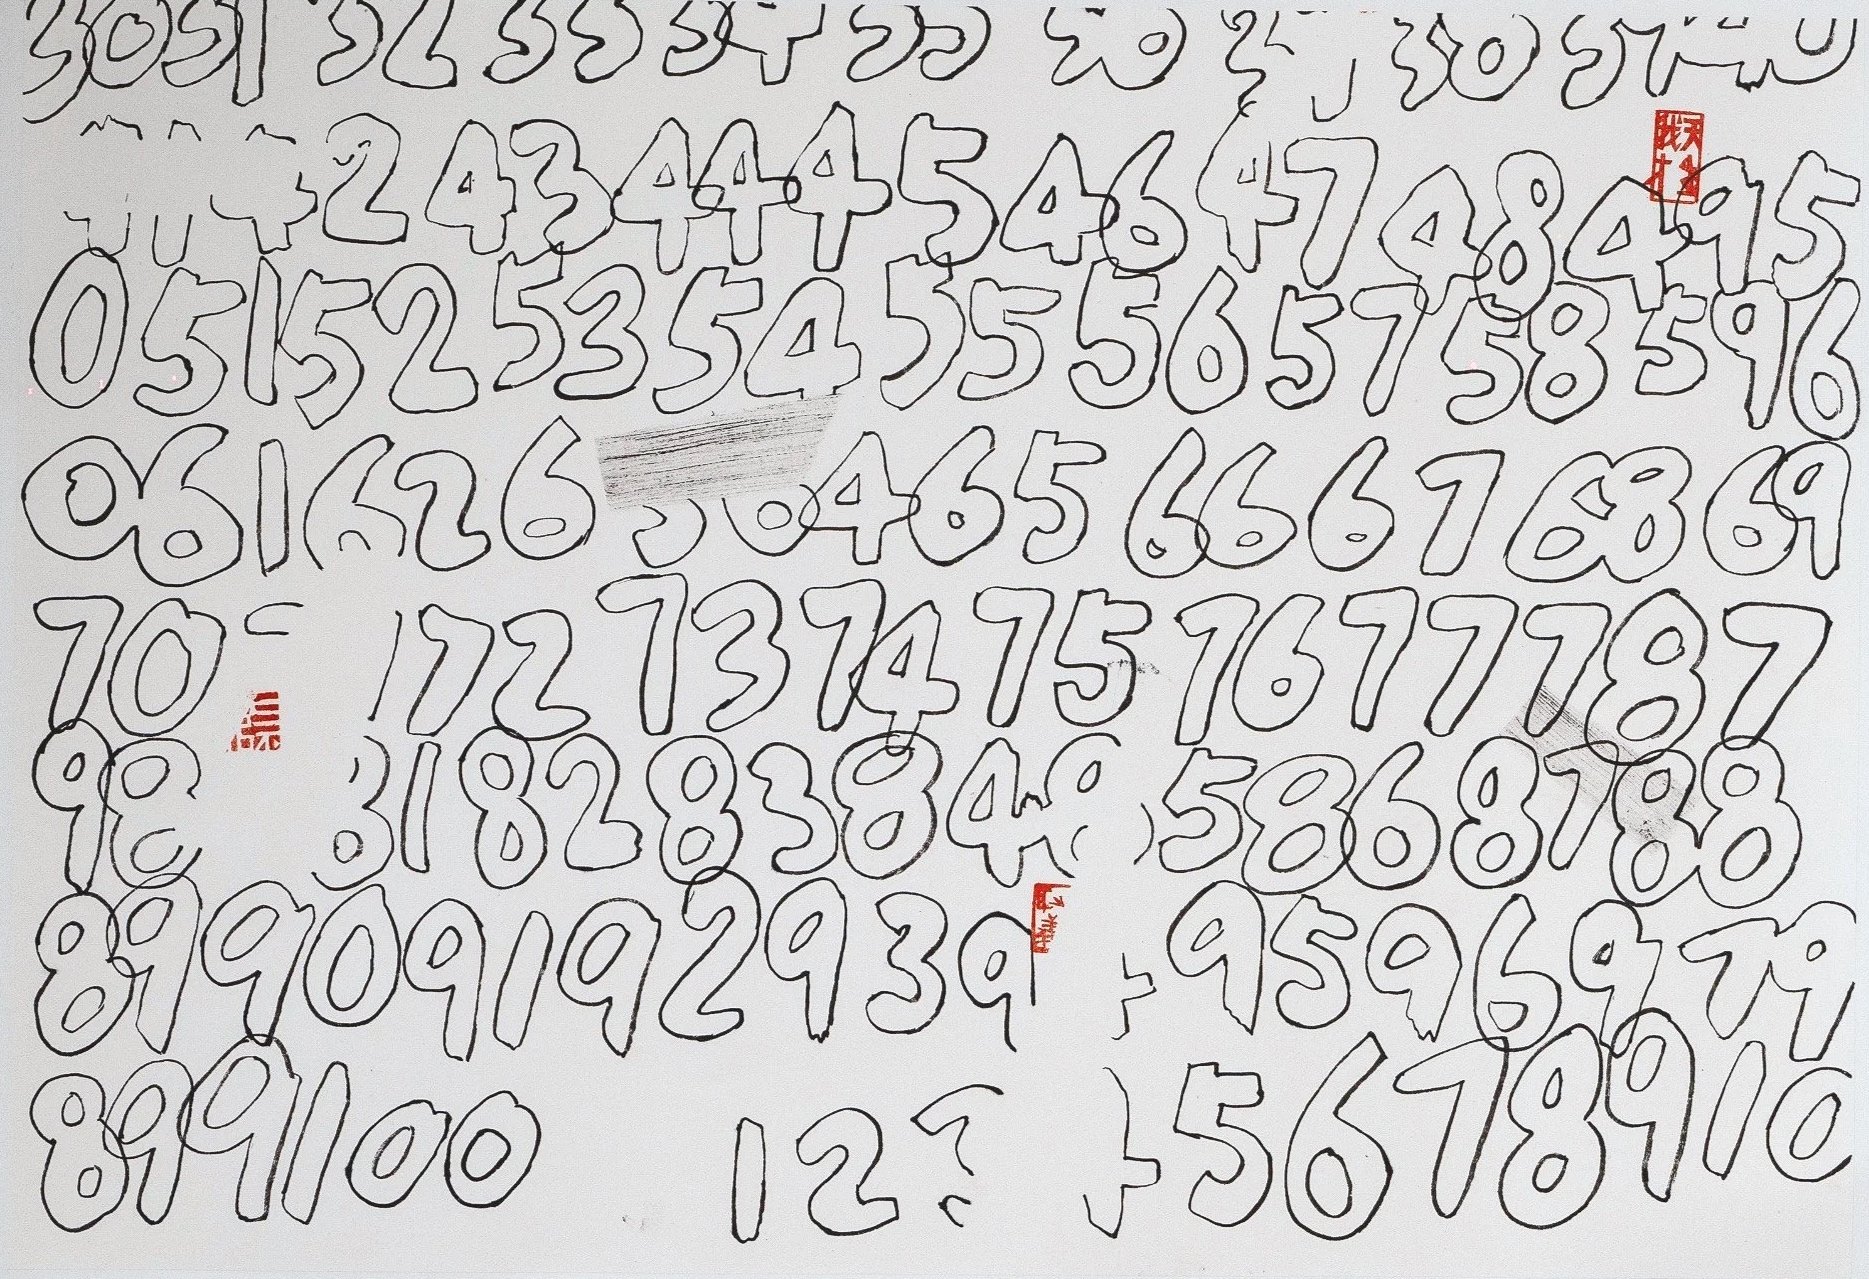 30 31 32 33 34 35 36 38 39 40
42 43 44 45 46 47 48 49 5
0 51 52 53 54 55 56 57 58 59 6
0 61 62 6 64 65 66 67 68 69
70 1 72 73 74 75 76 77 78 7
9 8 81 82 83 84 85 86 87 88
89 90 91 92 93 9 95 96 97 9
8 99 100 1 2 5 6 7 8 9 10